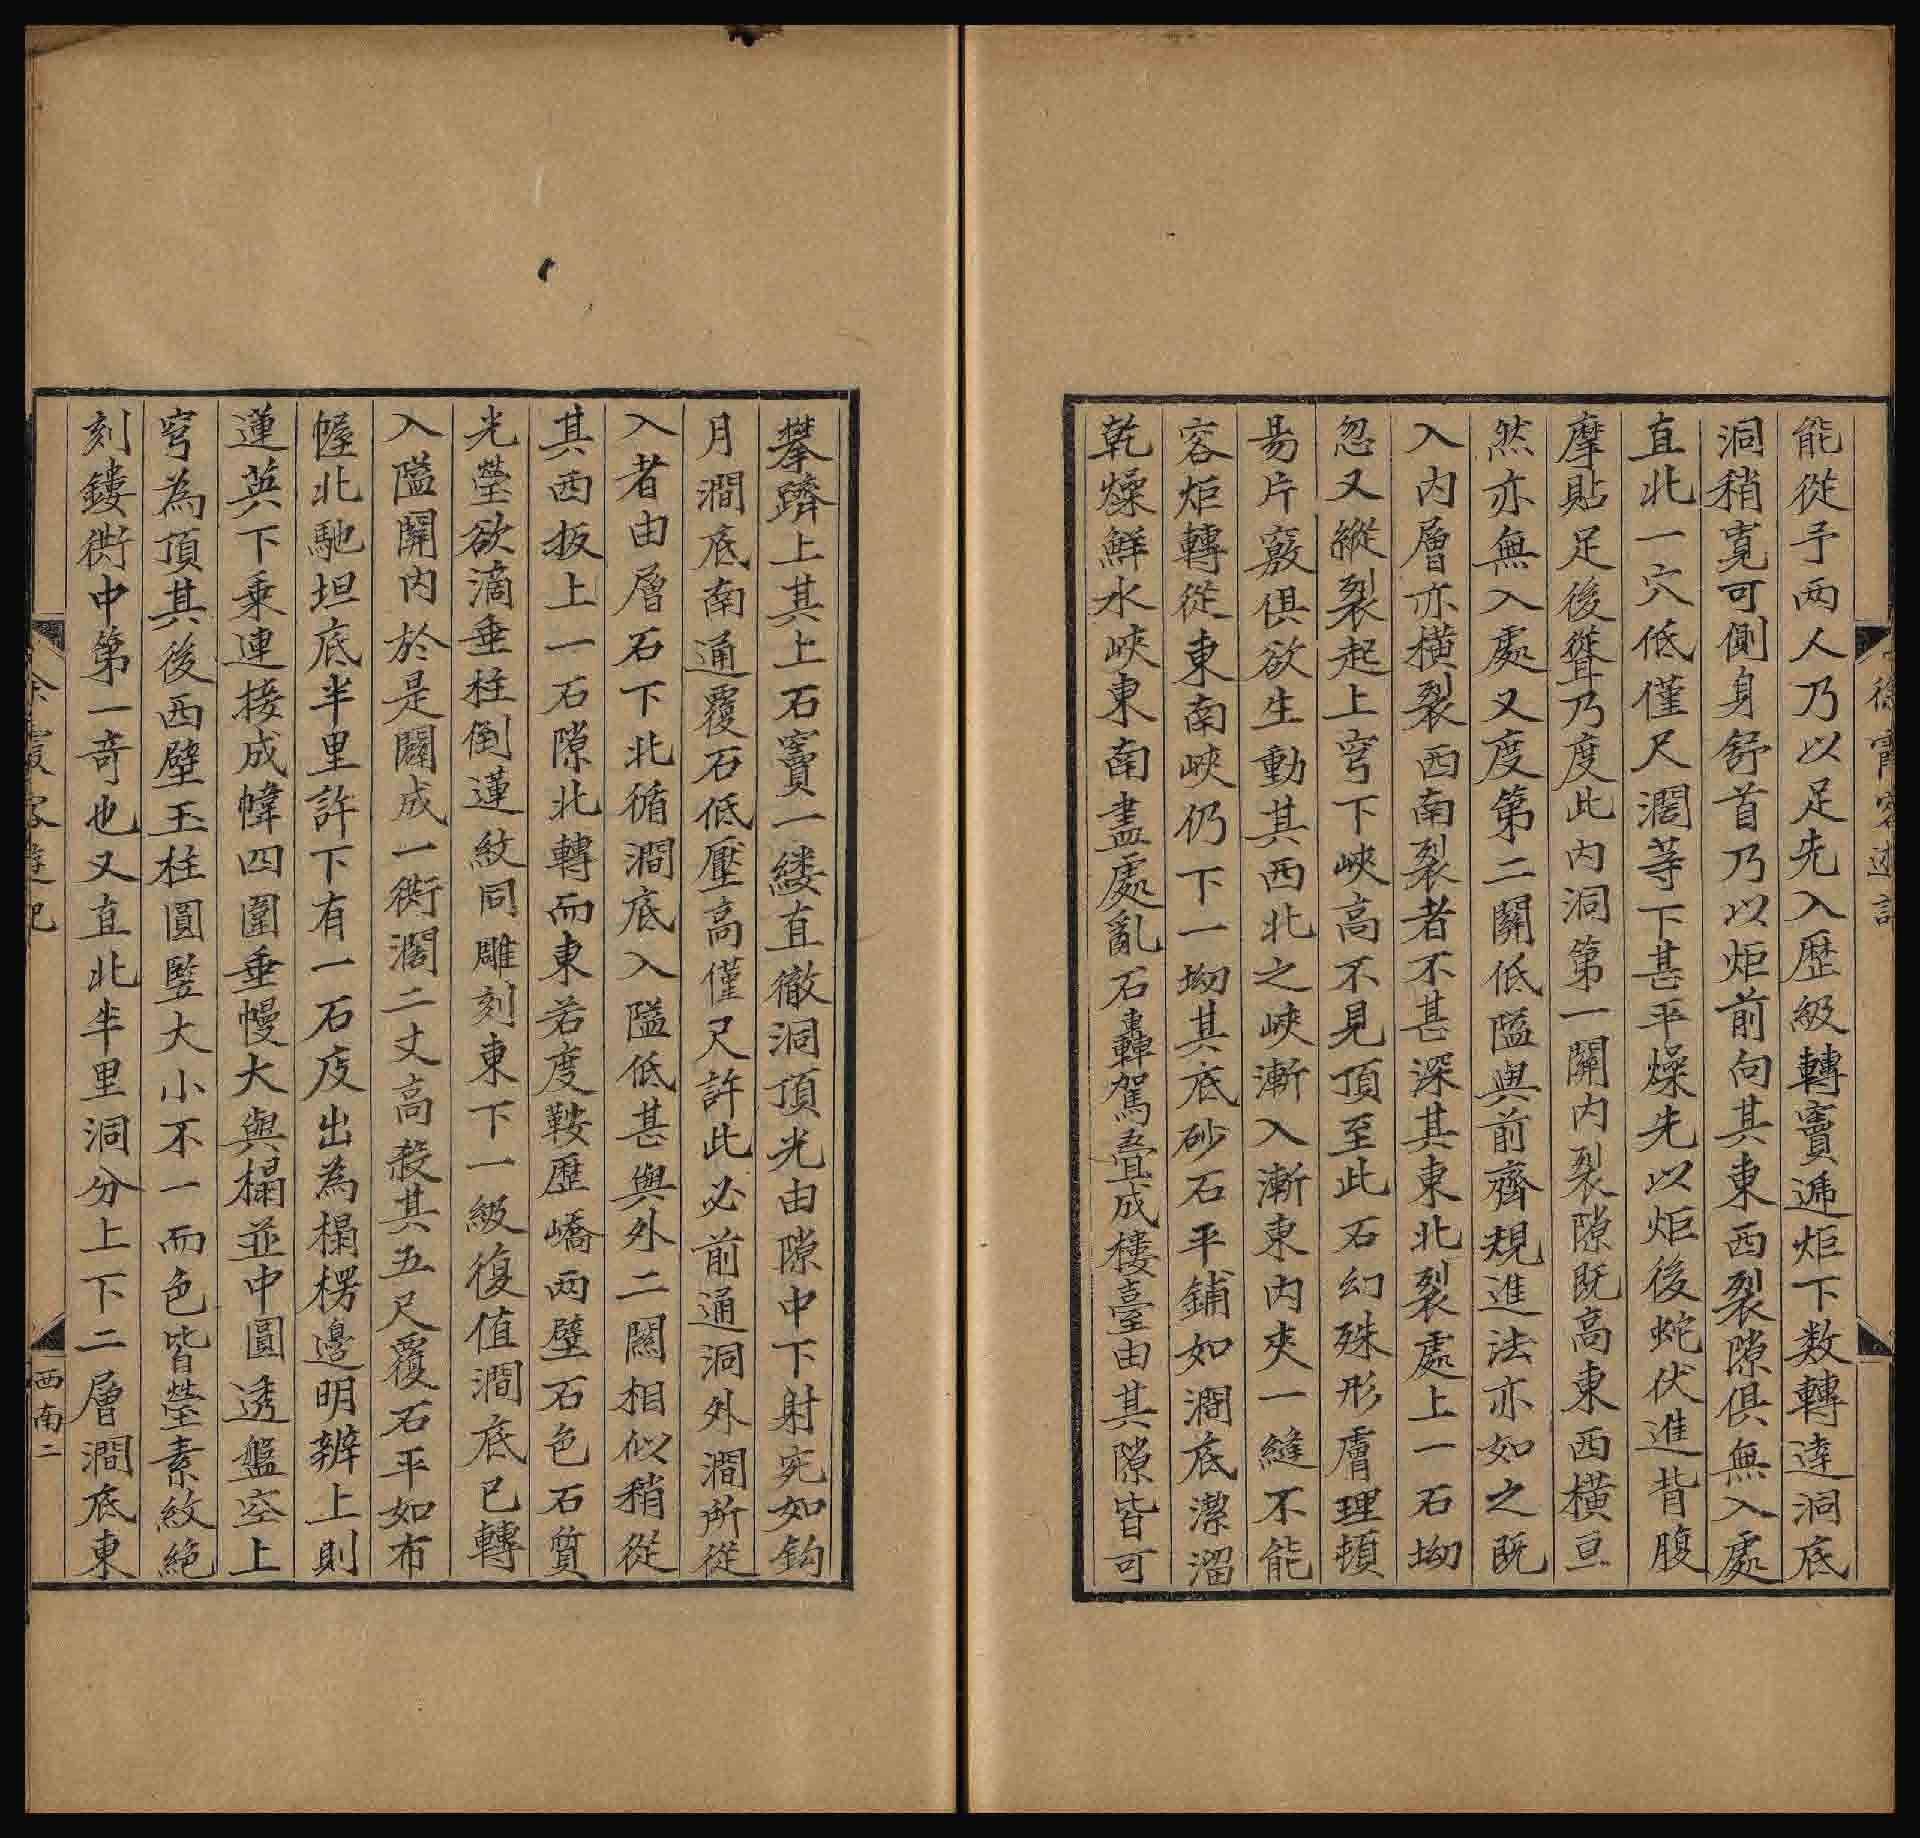 能從予兩人乃以足先入歷級轉竇遞炬下数轉達洞底
洞稍寬可側身舒首乃以炬前向其東西裂隙俱無入處
直北一穴低僅尺濶等下甚平燥先以炬後蛇伏進背腹
摩貼足後聳乃度此内洞第一關内裂隙既高東西橫亘
然亦無入處又度第二關低隘與前齊規進法亦如之既
入内層亦橫裂西南裂者不甚深其東北裂處上一石坳
忽又縱裂起上穹下峽高不見頂至此石幻殊形膚理頓
易片竅俱欲生動其西北之峽漸入漸東内夾一縫不能
容炬轉從東南峽仍下一坳其底砂石平鋪如澗底潔溜
乾燥鮮水峽東南盡處亂石轟駕疊成樓臺由其隙皆可
西南二
攀躋上其上石竇一縷直徹洞頂光由隙中下射宛如鈎
月澗底南通覆石低壓高僅尺許此必前通洞外澗所從
入者由層石下北循澗底入隘低甚與外二關相似稍從
其西扳上一石隙北轉而東若度鞍歷嶠兩壁石色石質
光瑩欲滴垂柱倒蓮紋同雕刻東下一級復值澗底已轉
入隘關内於是闢成一衖濶二丈高殺其五尺覆石平如布
幄北馳坦底半里許下有一石庋出為榻楞邊明辨上則
蓮英下乘連接成幃四圍垂幔大與榻並中圓透盤空上
穹為頂其後西壁玉柱圓豎大小不一而色皆瑩素紋絶
刻鏤衖中第一奇也又直北半里洞分上下二層澗底東